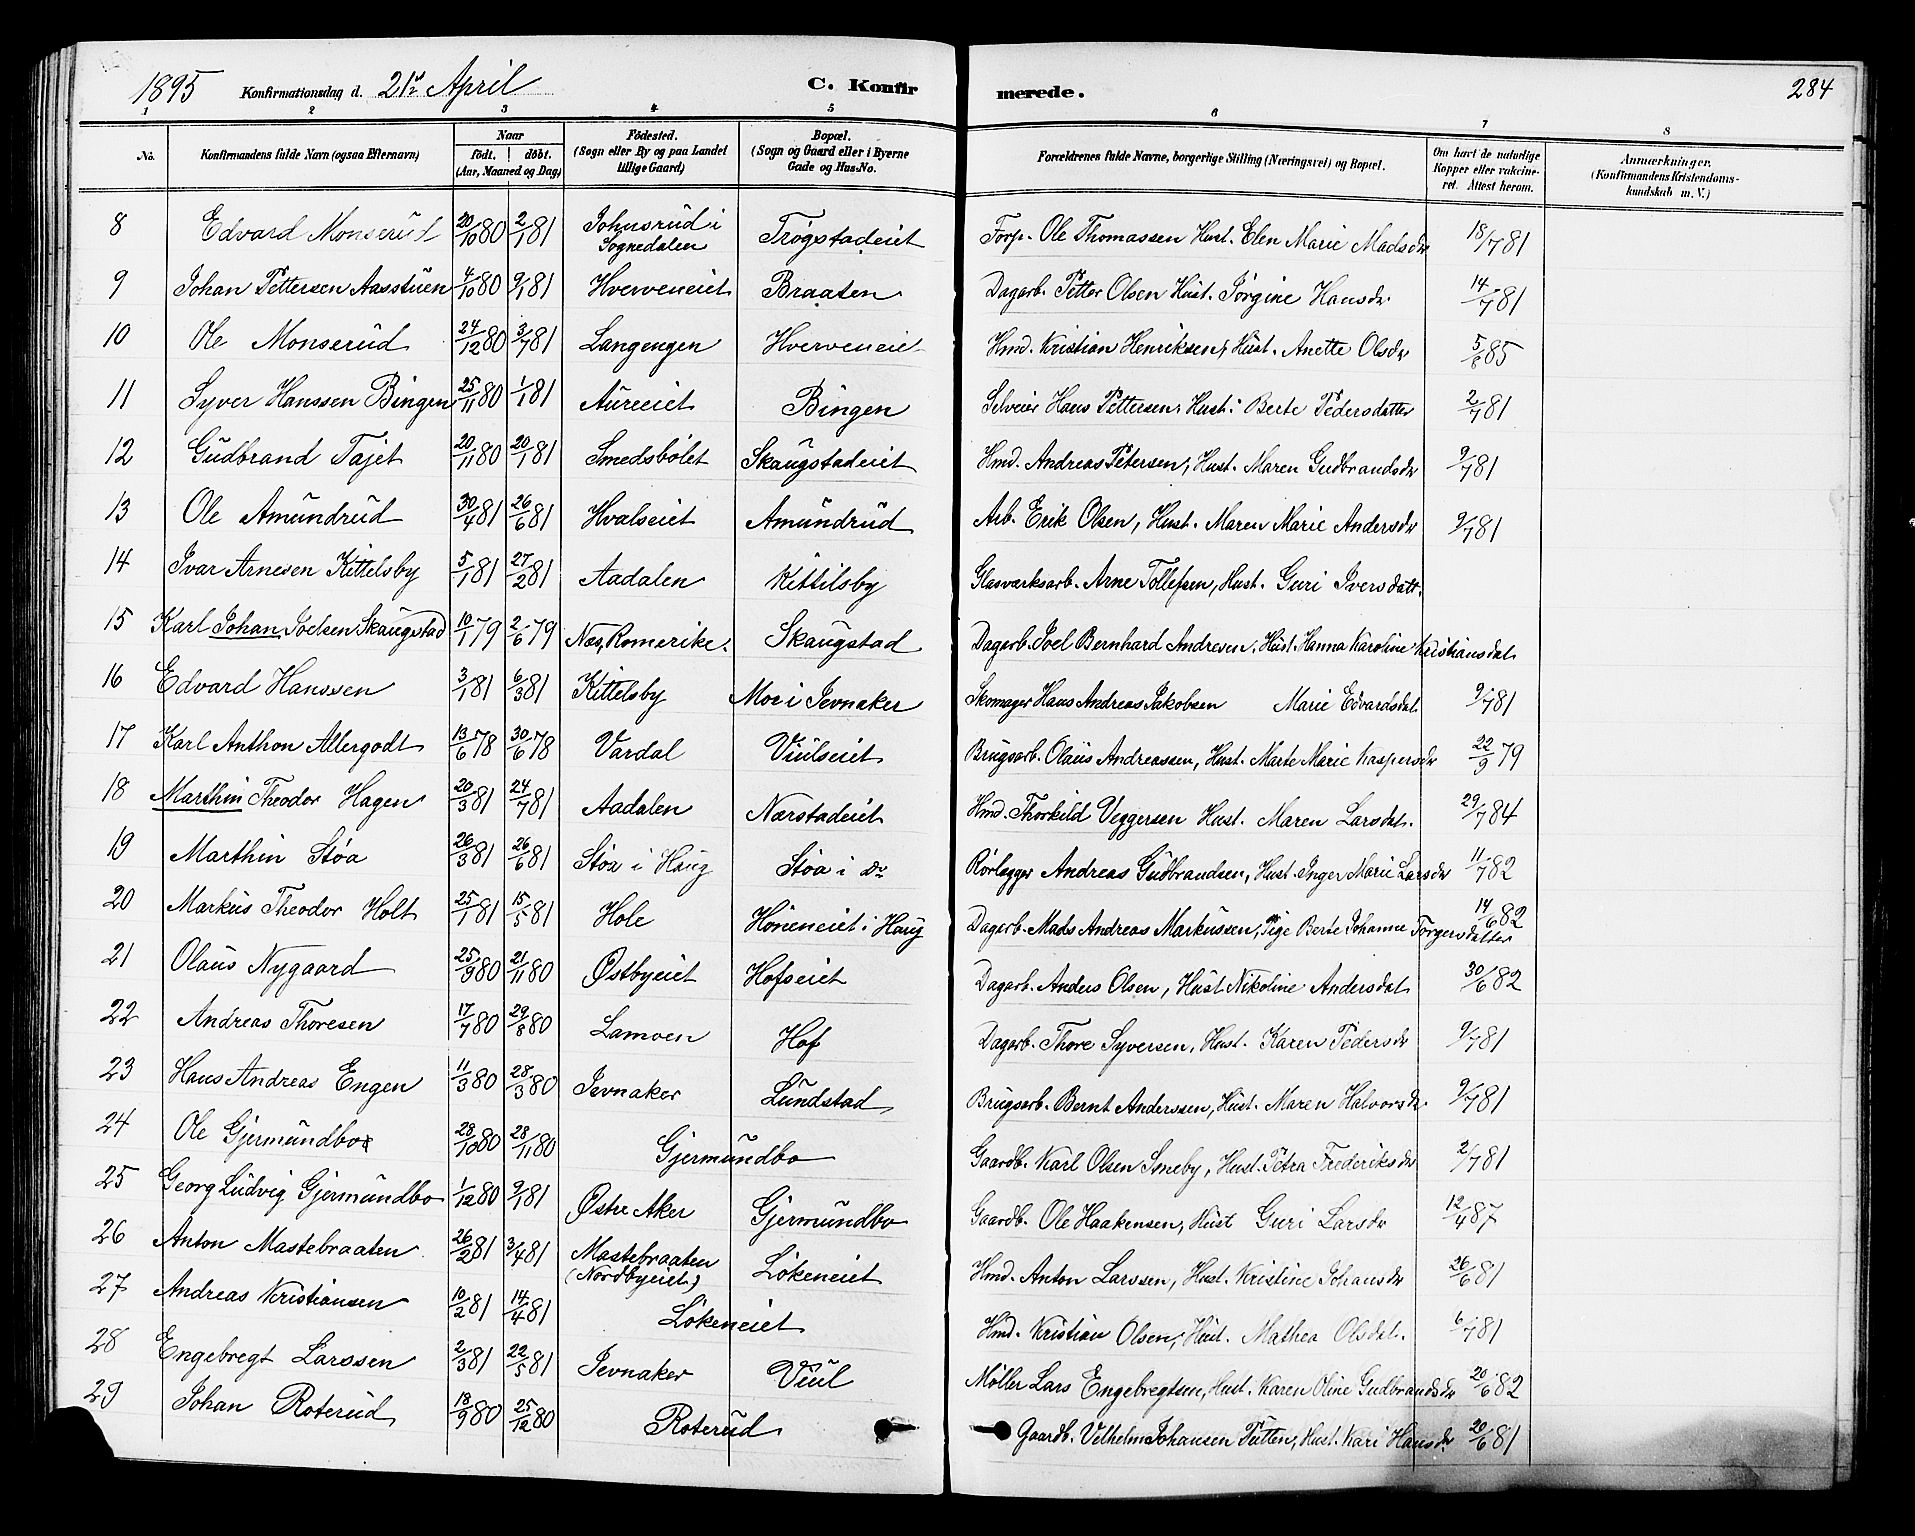 1895 Konfirmationsdag d. 21de April C. Konfirmerede. 284
1 2 3 4 5 6 7 8
No. Konfirmandens fulde Navn (ogsaa Efternavn) Naar født. døbt. (Aar, Maaned og Dag) Fødested. (Sogn eller By og paa Landet tillige Gaard) Bopæl. (Sogn og Gaard eller i Byerne Gade og Hus-No. Forældrenes fulde Navne, borgerlige Stilling (Næringsvei) og Bopæl. Om havt de naturlige Kopper eller vakcineret. Attest herom. Anmærkninger. (Konfirmandens Kristendomskundskab m. V.)
8 Edvard Monserud 20/10 80 2/1 81 Johnsrud i Sognedalen Trøgstadeiet Torp. Ole Thomassen Hust. Elen Marie Madsdr 18/7 81
9 Johan Pettersen Aasstuen 4/10 80 9/1 81 Hverveneiet Braaten Dagarb. Petter Olsen Hust. Jørgine Hansdr 14/7 81
10 Ole Monserud 24/12 80 3/7 81 Langengen Hverveneiet Hmd. Kristian Henriksen, Hust. Anette Olsdr 5/8 85
11 Syver Hanssen Bingen 25/11 80 1/1 81 Aureeiet Bingen Selveier Hans Pettersen, Hust. Berte Pedersdatter 2/7 81
12 Gudbrand Tajet 20/11 80 20/1 81 Smedsbølet Skaugstadeiet Hmd. Andreas Petersen, Hust. Maren Gudbrandsdr 9/7 81
13 Ole Amundrud 30/4 81 26/6 81 Hvalseiet Amundrud Arb. Erik Olsen, Hust. Maren Marie Andersdr 9/7 81
14 Ivar Arnesen Kittelsby 5/1 81 27/2 81 Aadalen Kittilsby Glasværksarb. Arne Tollefsen, Hust. Guri Iversdatt.
15 Karl Johan Joelsen Skaugstad 10/1 79 2/6 79 Næs, Romerike. Skaugstad Dagarb. Joel Bernhard Andresen, Hust. Hanna Karoline Kristiansdat
16 Edvard Hanssen 3/1 81 6/3 81 Kittelsby Moe i Jevnaker Skomager Hans Andreas Jakobsen Marie Edvardsdat 9/7 81
17 Karl Anthon Allergodt 13/6 78 30/6 78 Vardal Viulseiet Brugsarb. Olaus Andreassen, Hust. Marte Marie Kaspersdr 22/9 79
18 Marthin Theodor Hagen 20/3 81 24/7 81 Aadalen Nærstadeiet Hmd. Thorkild Veggersen Hust. Maren Larsdat. 29/7 84
19 Marthin Støa 26/3 81 26/6 81 Støa i Haug Støa i do Rørlægger Andreas Gudbrandsen, Hust. Inger Marie Larsdr 11/7 82
20 Markus Theodor Holt 25/1 81 15/5 81 Hole Høneneiet i Haug Dagarb. Mads Andreas Markussen, Pige Berte Johanne Torgersdatter 14/6 82
21 Olaus Nygaard 25/9 80 21/11 80 Østbyeiet Hofseiet Dagarb. Anders Olsen, Hust Nikoline Andersdat 30/6 82
22 Andreas Thoresen 17/7 80 29/8 80 Lamoen Hof Dagarb. Thore Syversen, Hust. Karen Pedersdr 9/7 81
23 Hans Andreas Engen 11/3 80 28/3 80 Jevnaker Lundstad Brugsarb. Bernt Anderssen, Hust. Maren Halvorsdr 9/7 81
24 Ole Gjermundbo 28/10 80 28/11 80 Gjermundbo Gaardb. Karl Olsen Smeby, Hust. Petra Frederiksdr 2/7 81
25 Georg Ludvig Gjermundbo 1/12 80 9/1 81 Østre Aker Gjermundbo Gaardb. Ole Haakensen, Hust Guri Larsdr 12/4 87
26 Anton Mastebraaten 26/2 81 3/4 81 Mastebraaten (Nordbyeiet) Løkeneiet Hmd. Anton Larssen, Hust. Kristine Johansdr 26/6 81
27 Andreas Kristiansen 10/2 81 14/4 81 Løkeneiet Hmd. Kristian Olsen, Hust. Mathea Olsdat. 6/7 81
28 Engebregt Larssen 2/3 81 22/5 81 Jevnaker Viul Møller Lars Engebregtsen, Hust. Karen Oline Gudbrandsdr 20/6 82
29 Johan Roterud 18/9 80 25/12 80 Roterud Gaardb. Velhelm Johansen Tutten, Hust. Kari Hansdr 20/6 81